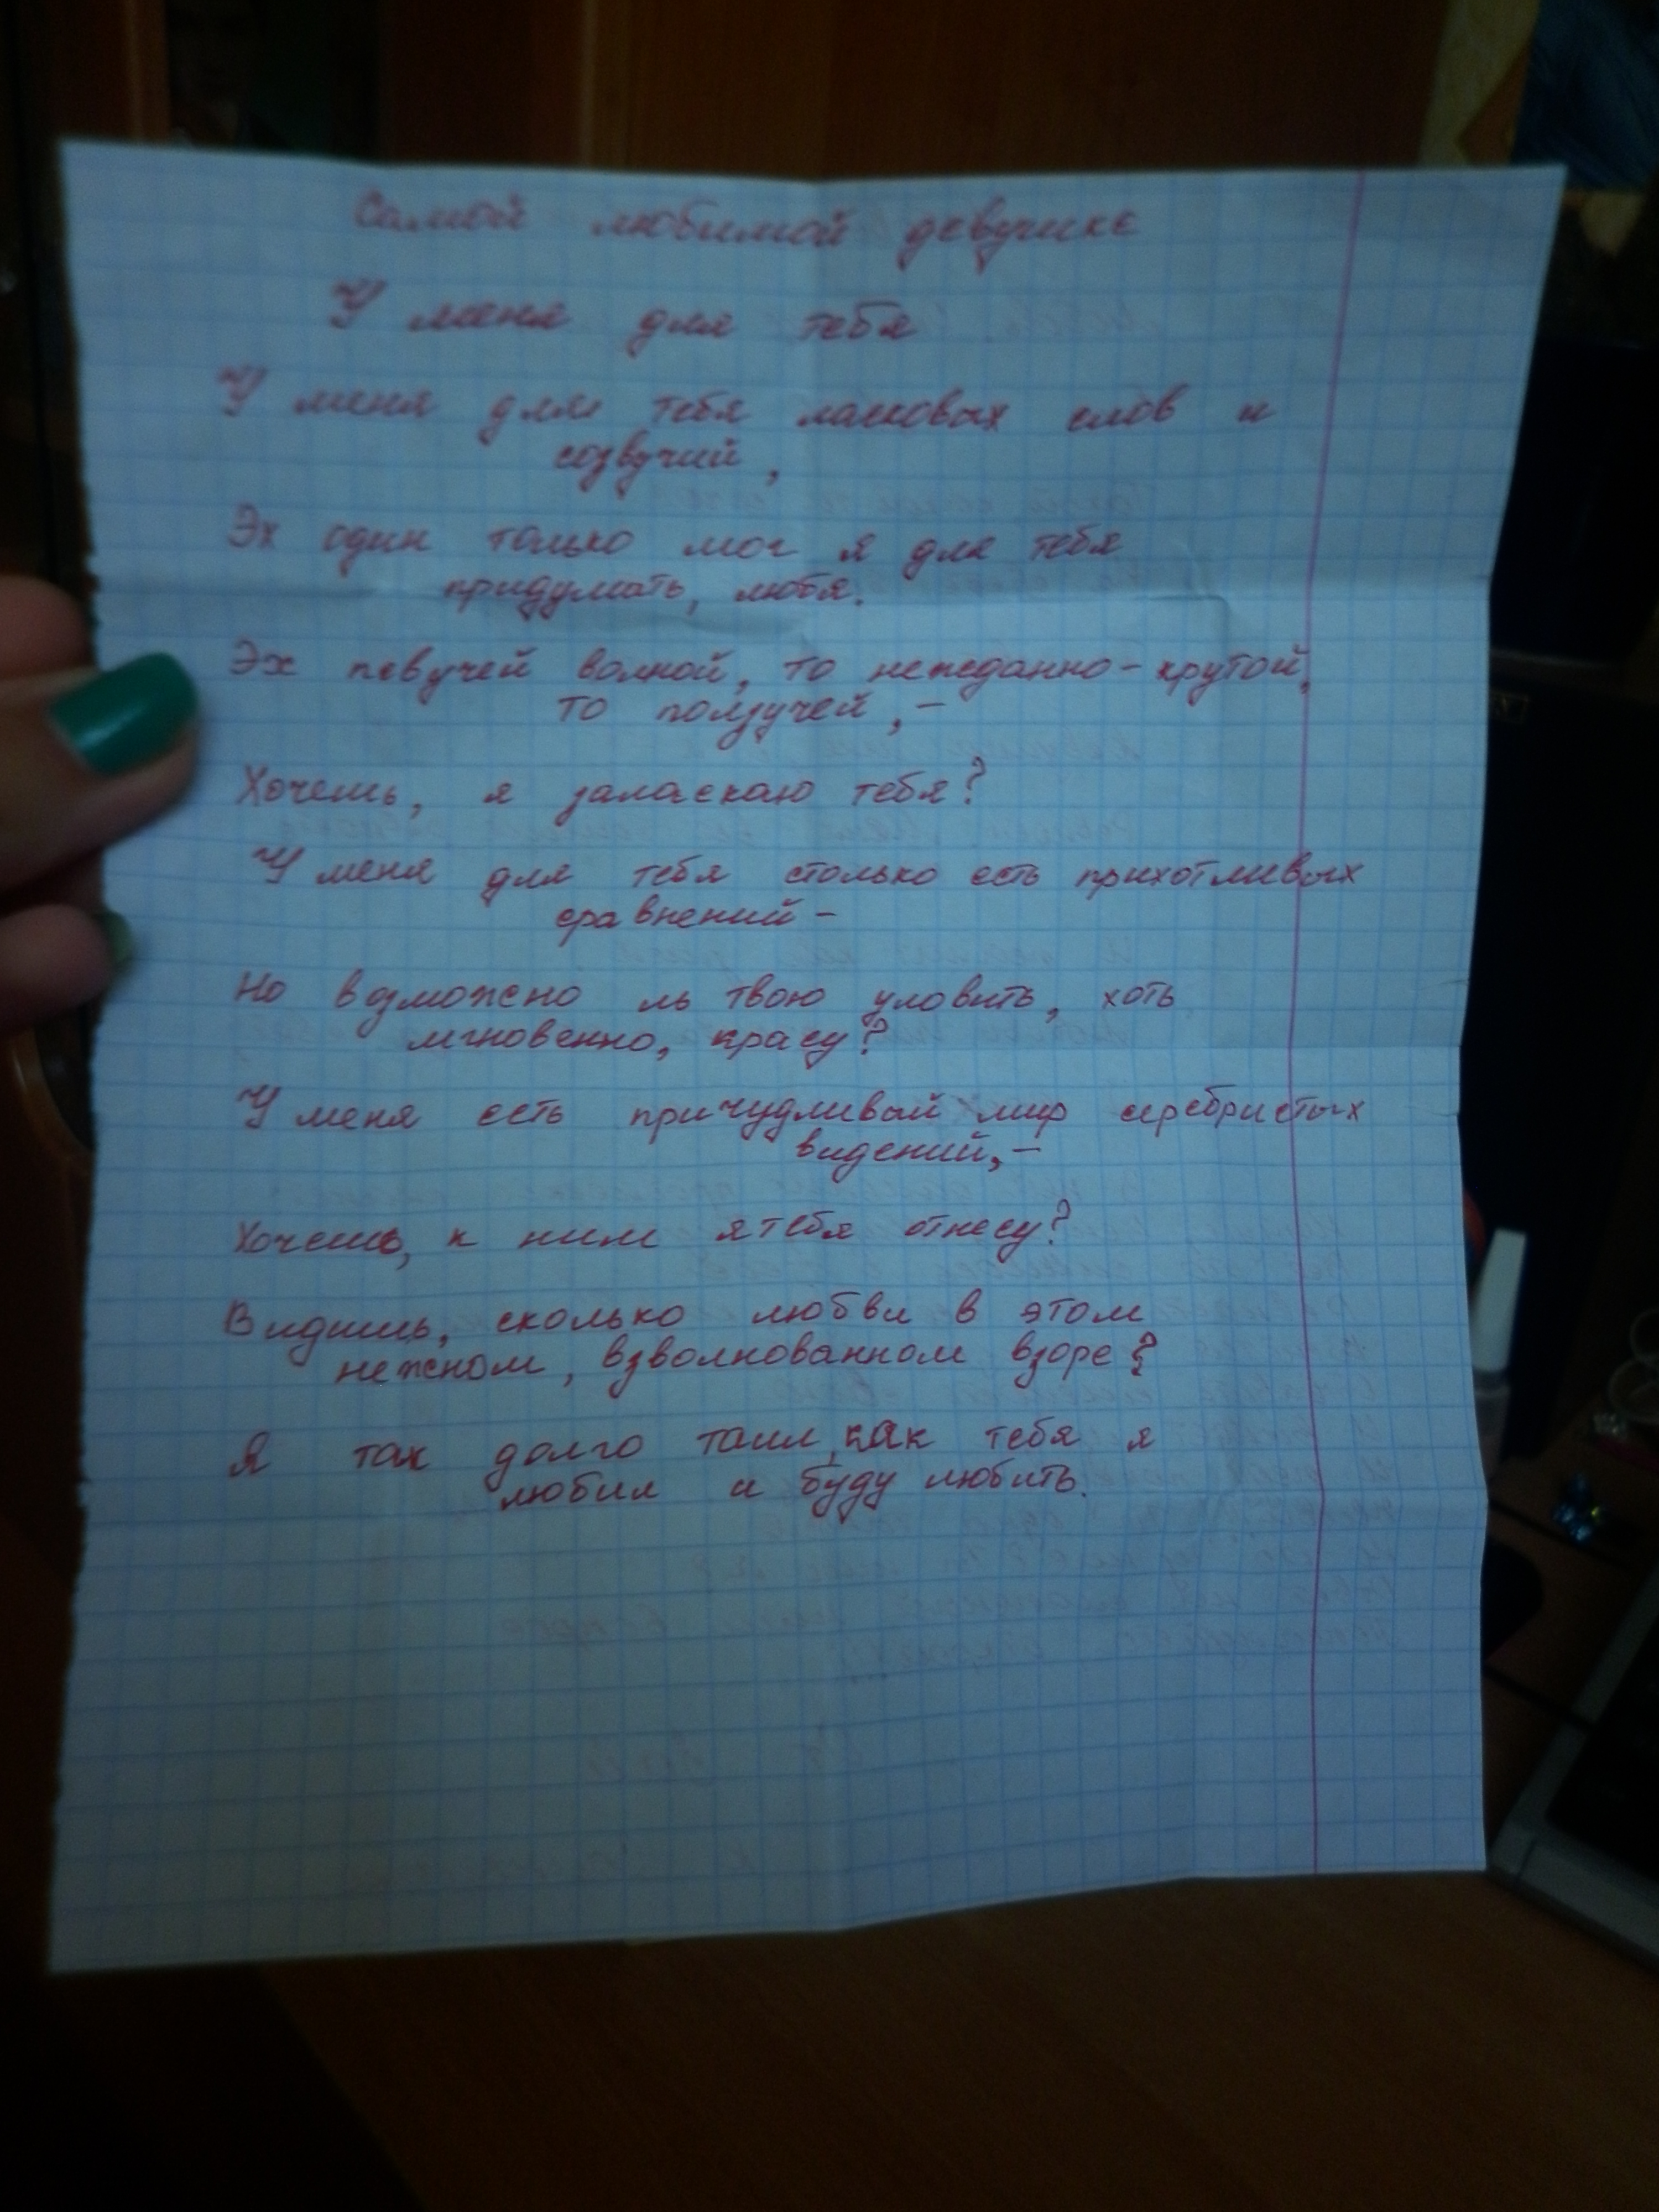 Самой любимой девушке
У меня для тебя
У меня для тебя ласковых слов и
созвучий,
Эх один только мог я для тебя
придумать, любя.
Эх певучей волной, то нежданно-крутой,
то ползучей,-
Хочешь, я заласкаю тебя?
У меня для тебя столько есть прихотливых
сравнений-
Но возможно ль твою уловить, хоть
мгновенно, красу?
У меня есть причудливый мир серебристых
видений,-
Хочешь, к ним я тебя отнесу?
Видишь, сколько любви в этом
нежном, взволнованном взоре?
Я так долго таил, как тебя я
любил и буду любить.